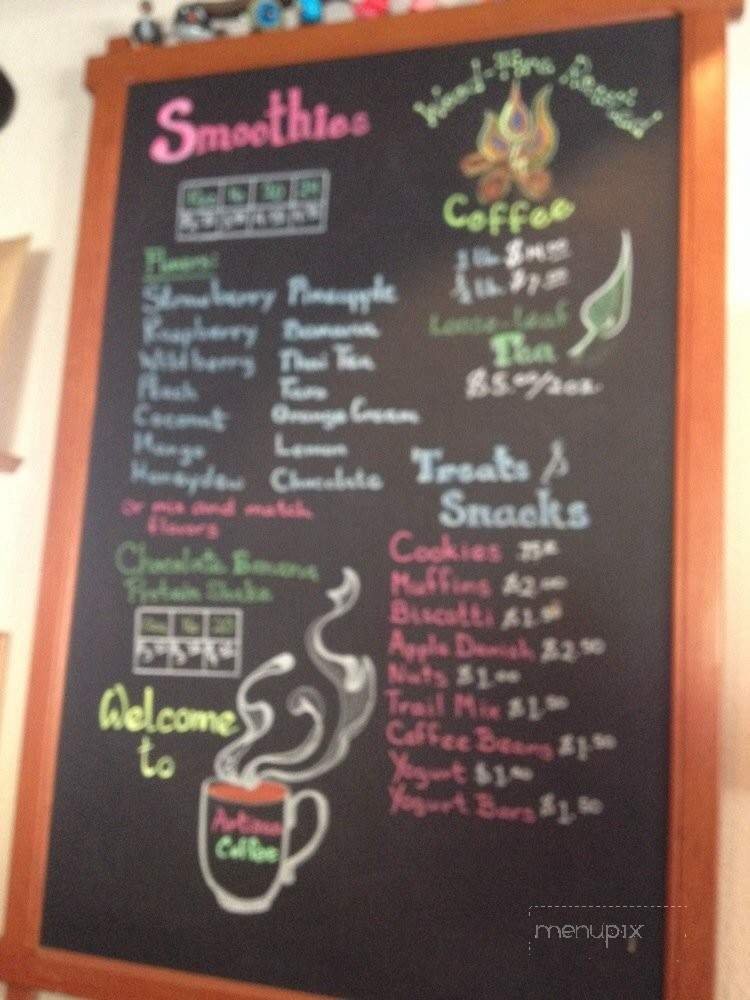 Smoothies
Flavors:
Strawberry Pineapple
Raspberry Banana
Wildberry Thai Tea
Peach Taro
Coconut Orange Cream
Mango Lemon
Honeydew Chocolate
or mix and match
flavors
Chocolate Banana
Protein Shake
Welcome
to
Artisan
Coffee
Wood-Fire Roasted
Coffee
1 lb. $14.00
½ lb. $7.50
Loose-Leaf
Tea
$5.00/2oz.
Treats &
Snacks
Cookies 75¢
Muffins $2.00
Biscotti $1.50
Apple Danish $2.50
Nuts $1.00
Trail Mix $1.50
Coffee Beans $1.50
Yogurt $1.00
Yogurt Bars $1.50
menupix